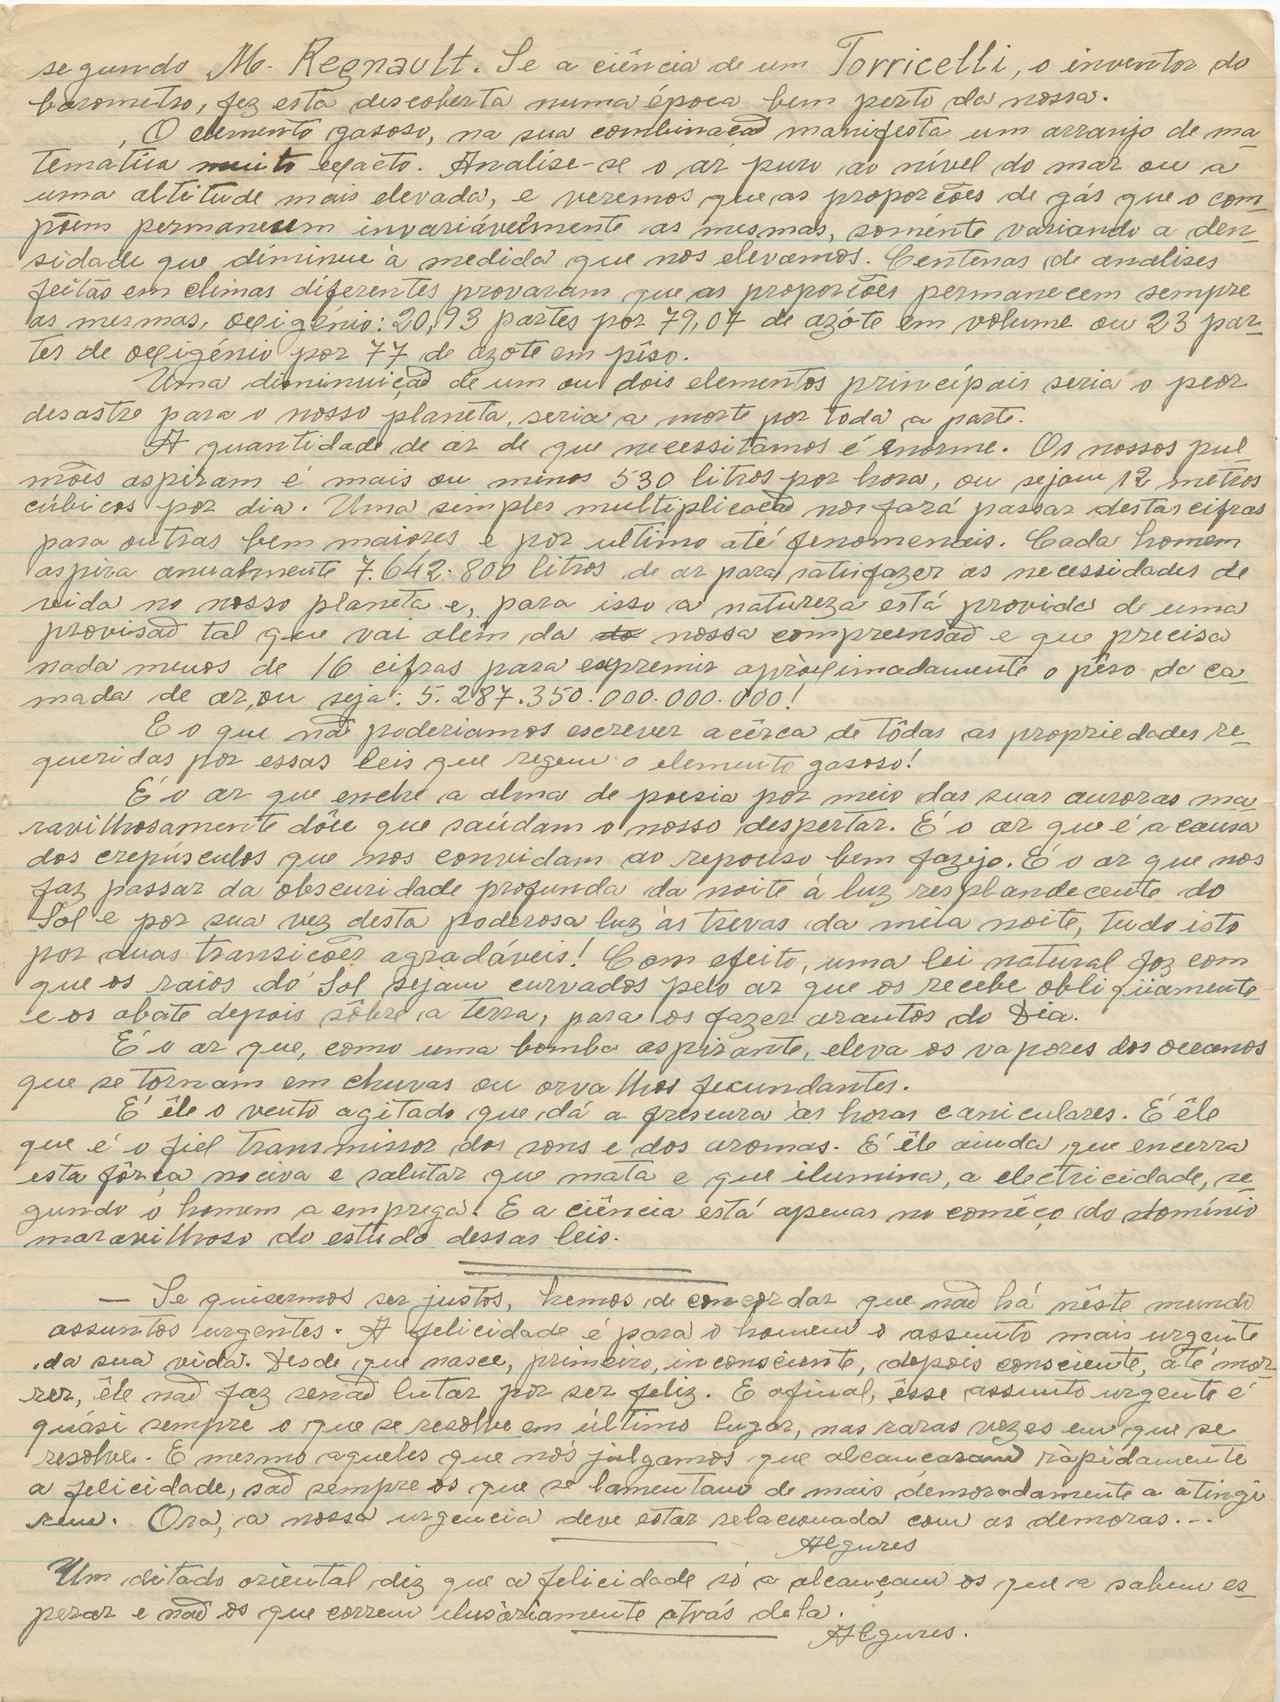 segundo M. Regnault. Se a ciência de um Torricelli, o inventor do
barometro, fez esta descoberta numa época bem perto da nossa.
O elemento gasoso, na sua combinação manifesta um arranjo de ma-
temática muito exacto. Analise-se o ar puro ao nível do mar ou a
uma altitude mais elevada, e veremos que as proporções de gás que o com-
põem permanecem invariávelmente as mesmas, sómente variando a den-
sidade que diminue à medida que nos elevamos. Centenas de analises
feitas em climas diferentes provaram que as proporções permanecem sempre
as mesmas, oxigénio: 20,93 partes por 79,07 de azóte em volume ou 23 par-
tes de oxigénio por 77 de azote em pêso.
Uma diminuição de um ou dois elementos principais seria o peor
desastre para o nosso planeta, seria a morte por toda a parte.
A quantidade de ar de que necessitamos é enorme. Os nossos pul
mões aspiram é mais ou menos 530 litros por hora, ou sejam 12 metros
cúbicos por dia. Uma simples multiplicação nos fará passar destas cifras
para outras bem maiores e por ultimo até fenomenais. Cada homem
aspira anualmente 7.642.800 litros de ar para satisfazer as necessidades de
vida no nosso planeta e, para isso a natureza está provida de uma
provisão tal que vai além da do nossa compreensão e que precisa
nada menos de 16 cifras para expremir apròximadamente o pêso da ca-
mada de ar, ou seja: 5.287.350.000.000.000!
E o que não poderiamos escrever acêrca de tôdas as propriedades re-
queridas por essas leis que regem o elemento gasoso!
É o ar que enche a alma de poesia por meio das suas auroras ma
ravilhosamente dôce que saúdam o nosso despertar. É o ar que é a causa
dos crepúsculos que nos convidam ao repouso bem fazejo. É o ar que nos
faz passar da obscuridade profunda da noite à luz resplandecente do
Sol e por sua vez desta poderosa luz às trevas da meia noite, tudo isto
por duas transicões agradáveis! Com efeito, uma lei natural faz com
que os raios do Sol sejam curvados pelo ar que os recebe obliqüamente
e os abate depois sôbre a terra, para os fazer arautos do Dia.
É o ar que, como uma bomba aspirante, eleva os vapores dos oceanos
que se tornam em chuvas ou orvalhos fecundantes.
É êle o vento agitado que dá a frescura às horas caniculares. É êle
que é o fiel transmissor dos sons e dos aromas. É êle ainda que encerra
esta fôrça nociva e salutar que mata e que ilumina, a electricidade, se-
gundo o homem a emprega! E a ciência está apenas no começo do domínio
maravilhoso do estudo dessas leis.
— Se quisermos ser justos, hemos de concordar que não há nêste mundo
assuntos urgentes. A felicidade é para o homem o assunto mais urgente
da sua vida. Desde que nasce, primeiro, inconsciente, depois consciente, até mor
rer, êle não faz senão lutar por ser feliz. E afinal, êsse assunto urgente é
quási sempre o que se resolve em último lugar, nas raras vezes em que se
resolve. E mesmo aqueles que nós julgamos que alcancaram ràpidamente
a felicidade, são sempre os que se lamentam de mais demoradamente a atingi
rem. Ora, a nossa urgencia deve estar relacionada com as demoras...
Algures
Um ditado oriental diz que a felicidade só a alcançam os que a sabem es-
perar e não os que correm ilusòriamente atrás dela.
Algures.